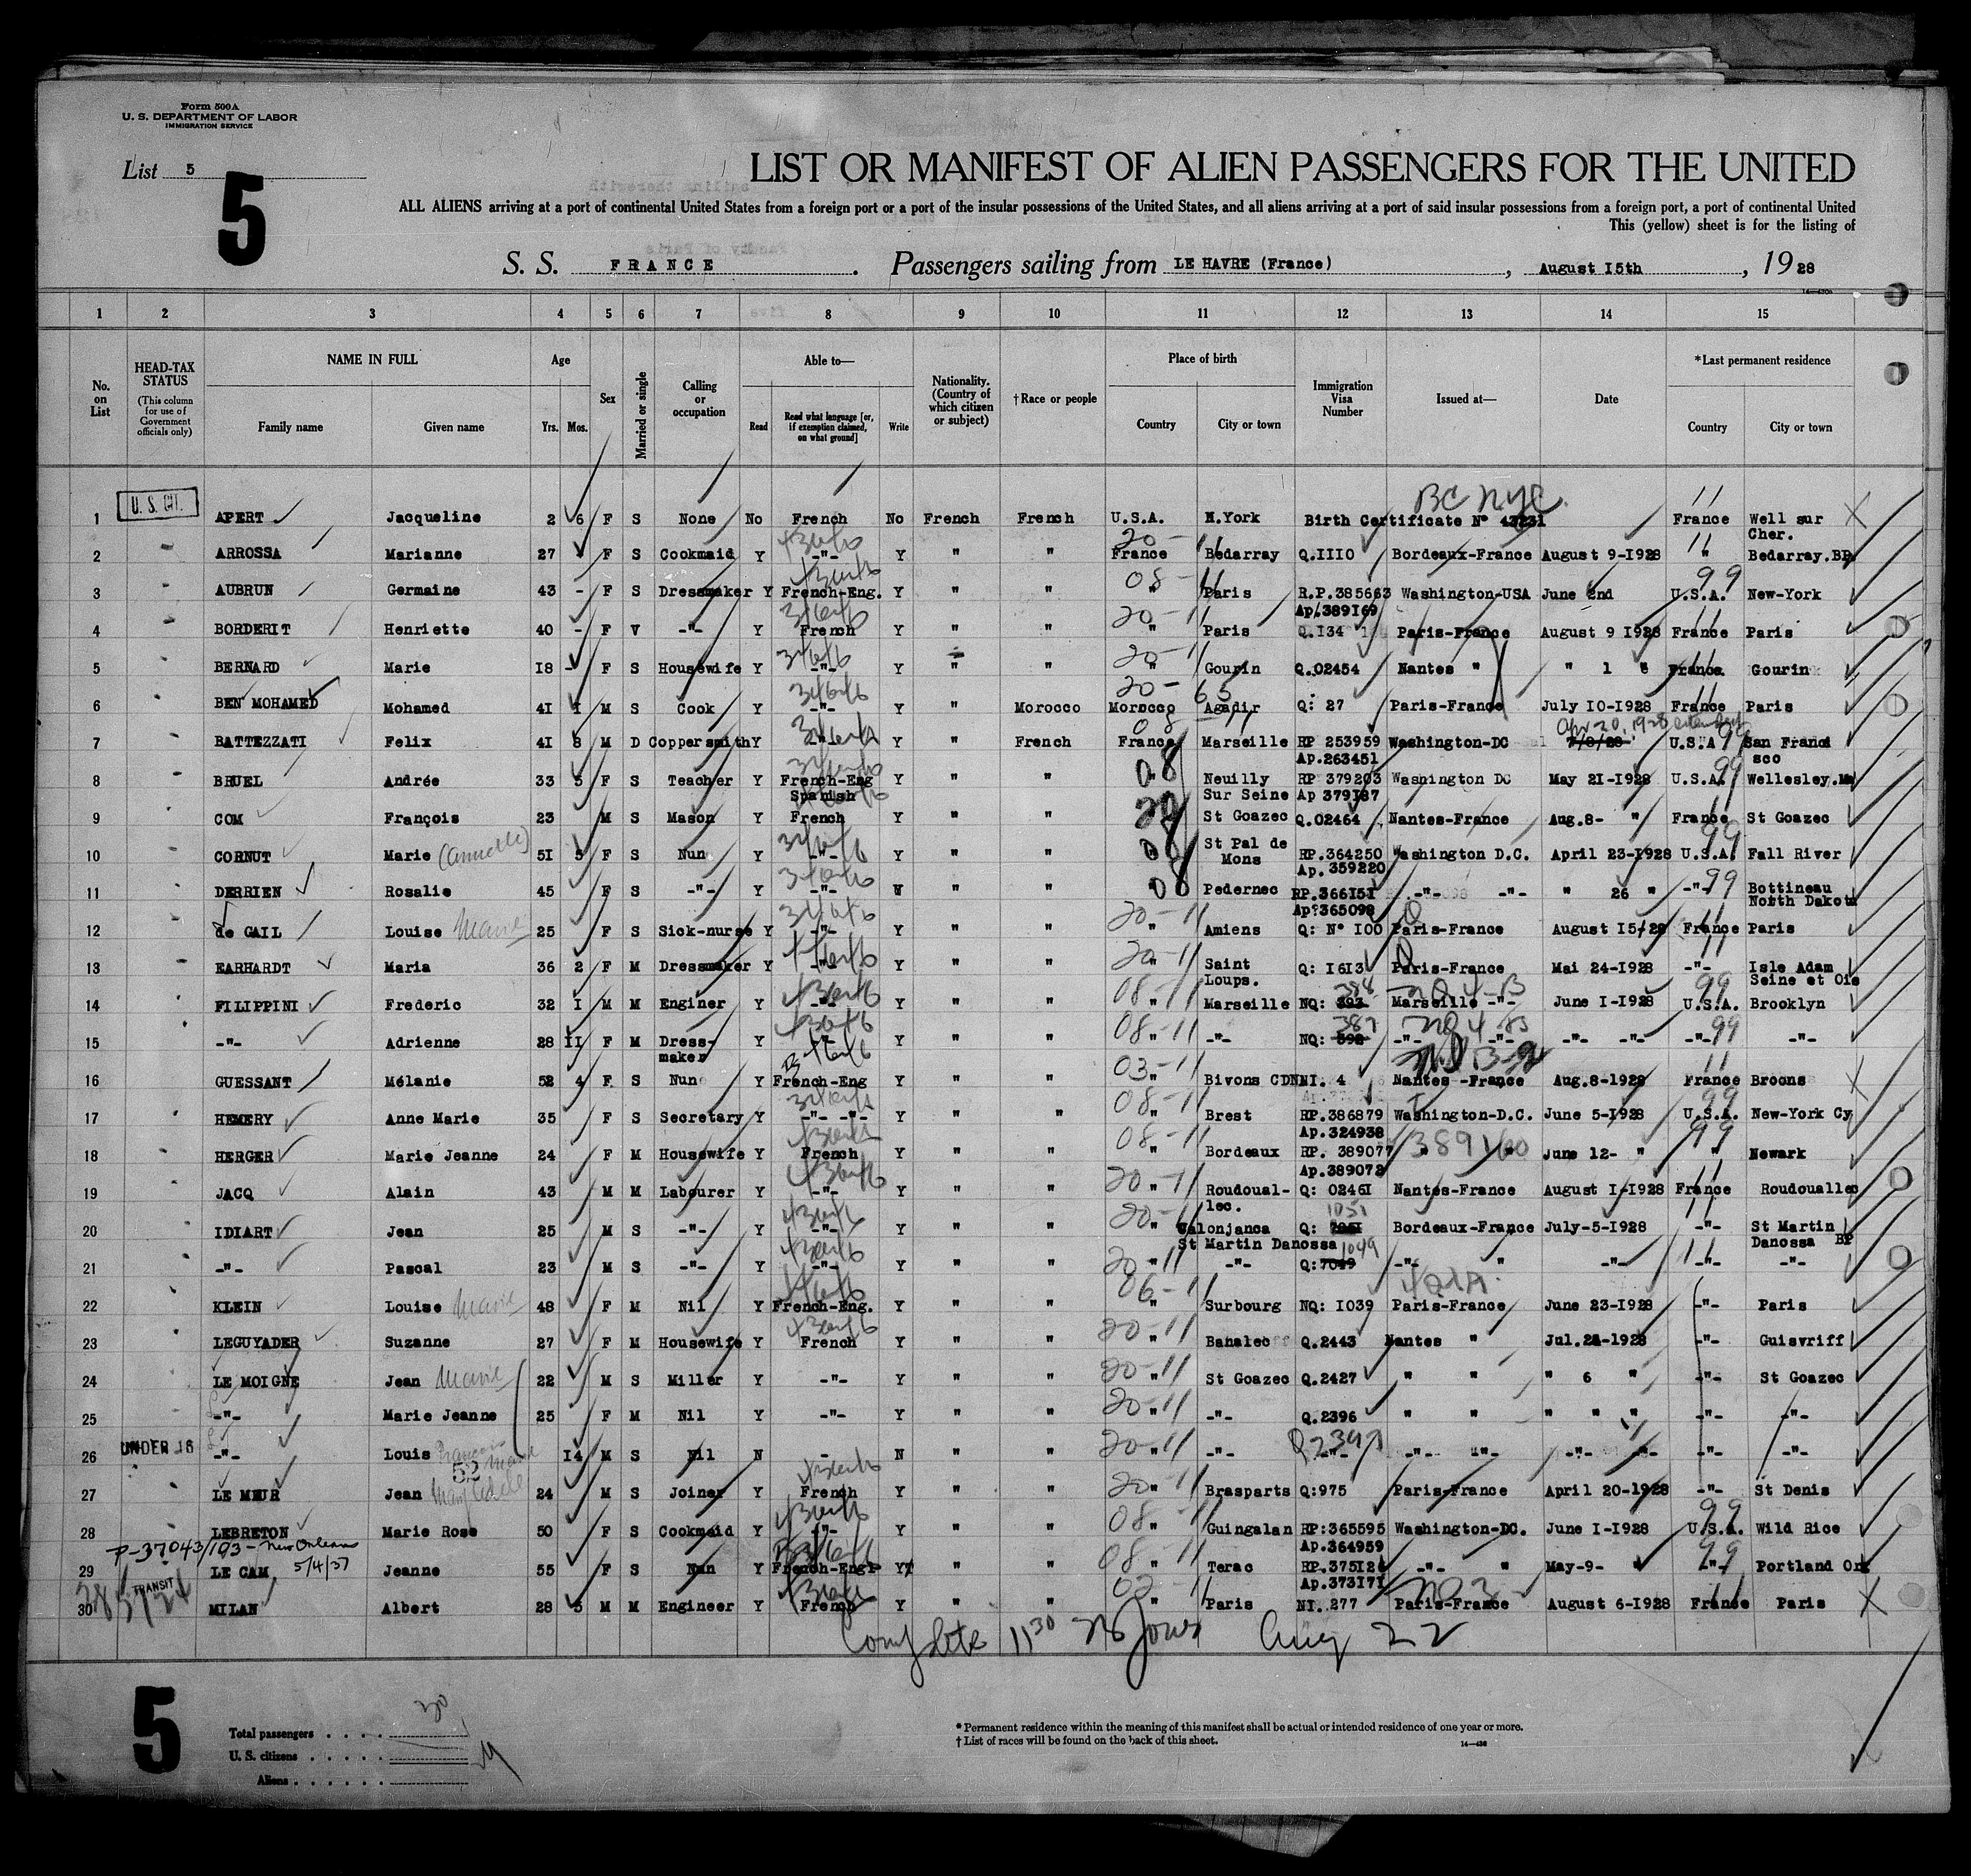 Form 500A
U. S. DEPARTMENT OF LABOR
IMMIGRATION SERVICE
List 5
5
LIST OR MANIFEST OF ALIEN PASSENGERS FOR THE UNITED
ALL ALIENS arriving at a port of continental United States from a foreign port or a port of the insular possessions of the United States, and all aliens arriving at a port of said insular possessions from a foreign port, a port of continental United
This (yellow) sheet is for the listing of
S. S. FRANCE. Passengers sailing from LE HAVRE (France), August 15th, 1928
1 2 3 4 5 6 7 8 9 10 11 12 13 14 15
No. on List
HEAD-TAX STATUS
(This column for use of Government officials only)
NAME IN FULL
Family name Given name
Age
Yrs. Mos.
Sex
Married or single
Calling or occupation
Able to—
Read
Read what language [or, if exemption claimed, on what ground]
Write
Nationality. (Country of which citizen or subject)
† Race or people
Place of birth
Country City or town
Immigration Visa Number
Issued at—
Date
*Last permanent residence
Country City or town
BC NYC
1 U. S. CIT. APERT Jacqueline 2 6 F S None No French No French French U.S.A. N.York Birth Certificate N° 43231 France Well sur Cher.
2 ARROSSA Marianne 27 F S Cookmaid Y -"- Y " " France Bedarray Q.IIIO Bordeaux-France August 9-I928 " Bedarray.BP
3 AUBRUN Germaine 43 - F S Dressmaker Y French-Eng. Y " " " Paris R.P.385663 Ap/389I69 Washington-USA June 2nd U.S.A. New-York
4 BORDERIT Henriette 40 - F V -"- Y French Y " " " Paris Q.I34 Paris-France August 9 I928 France Paris
5 BERNARD Marie I8 - F S Housewife Y -"- Y " " " Gourin Q.02454 Nantes " " 1 " France Gourin
6 BEN MOHAMED Mohamed 4I I M S Cook Y -"- Y " Morocco Morocco Agadir Q: 27 Paris-France July IO-I928 France Paris
7 BATTEZZATI Felix 4I 8 M D Coppersmith Y -"- Y " French France Marseille RP 253959 Ap.26345I Washington-DC U.S.A San Franci sco
8 BRUEL Andrée 33 5 F S Teacher Y French-Eng Spanish Y " " Neuilly Sur Seine RP 379203 Ap 379I87 Washington DC May 2I-I928 U.S.A. Wellesley.Ma
9 COM François 23 M S Mason Y French Y " " St Goazec Q.02464 Nantes-France Aug.8- " France St Goazec
10 CORNUT Marie (Annette) 5I 5 F S Nun Y -"- Y " " St Pal de Mons RP.364250 Ap. 359220 Washington D.C. April 23-I928 U.S.A. Fall River
11 DERRIEN Rosalie 45 F S -"- Y -"- Y " " Pedernec RP.366I5I Ap:365098 -"- -"- " 26 " -"- Bottineau North Dakota
12 de GAIL Louise Marie 25 F S Sick-nurse Y -"- Y " " " Amiens Q: N° IOO Paris-France August I5/28 France Paris
13 EARHARDT Maria 36 2 F M Dressmaker Y -"- Y " " " Saint Loups. Q: I6I3 Paris-France Mai 24-I928 -"- Isle Adam Seine et Ois
14 FILIPPINI Frederic 32 I M M Enginer Y -"- Y " " " Marseille NQ: 393 388 Marseille -"- June I-I928 U.S.A. Brooklyn
15 -"- Adrienne 28 II F M Dress-maker Y -"- Y " " " -"- NQ: 392 387 -"- -"- -"- -"- -"- -"-
16 GUESSANT Mélanie 52 4 F S Nun Y French-Eng Y " " " Bivons CDN NI. 4 Nantes-France Aug.8-1928 France Broons
17 HEMERY Anne Marie 35 F S Secretary Y -"- -"- Y " " " Brest RP.386879 Ap.324938 Washington-D.C. June 5-I928 U.S.A. New-York Cy
18 HERGER Marie Jeanne 24 F M Housewife Y French Y " " " Bordeaux RP. 389077 Ap.389072 389160 June I2- " " Newark
19 JACQ Alain 43 M M Labourer Y -"- Y " " " Roudoual-lec. Q: 0246I Nantes-France August I-I928 France Roudouallec
20 IDIART Jean 25 M S -"- Y -"- Y " " " Valonjanca St Martin Danossa Q: 1051 Bordeaux-France July-5-I928 -"- St Martin Danossa BP
21 -"- Pascal 23 M S -"- Y -"- Y " " " -"- Q:7049 1049 -"- " -"- -"- -"-
22 KLEIN Louise Marie 48 F M Nil Y French-Eng. Y " " " Surbourg NQ: I039 Paris-France June 23-I928 -"- Paris
23 LEGUYADER Suzanne 27 F M Housewife Y French Y " " " Banalec Q.2443 Nantes " Jul.24-1928 -"- Guisvriff
24 LE MOIGNE Jean Marie 22 M S Miller Y -"- Y " " " St Goazec Q.2427 " " " 6 " -"- St Goazec
25 -"- Marie Jeanne 25 F M Nil Y -"- Y " " " -"- Q.2396 " " " " " -"- -"-
26 UNDER 16 -"- Louis François Marie I4 M S Nil N - N " " " -"- Q2397 -"- "- -"- -"- -"- -"-
27 LE MEUR Jean 52 24 M S Joiner Y French Y " " " Brasparts Q:975 Paris-France April 20-1928 -"- St Denis
28 LEBRETON Marie Rose 50 F S Cookmaid Y -"- Y " " " Guingalan RP:365595 Ap.364959 Washington-DC. June I-I928 U.S.A. Wild Rice
P-37043/193 - New Orleans 5/4/37
29 LE CAM Jeanne 55 F S Nun Y French-Engl Y " " " Terac RP.375I2 Ap.373I7I -"- " May-9- " " Portland Org
30 TRANSIT MILAN Albert 28 5 M M Engineer Y French Y " " " Paris NI. 277 Paris-France August 6-I928 France Paris
Complete 11 30 Jones Aug 22
5
Total passengers . . . . 30
U. S. citizens . . . . .
Aliens . . . . . .
* Permanent residence within the meaning of this manifest shall be actual or intended residence of one year or more.
† List of races will be found on the back of this sheet.
14—436